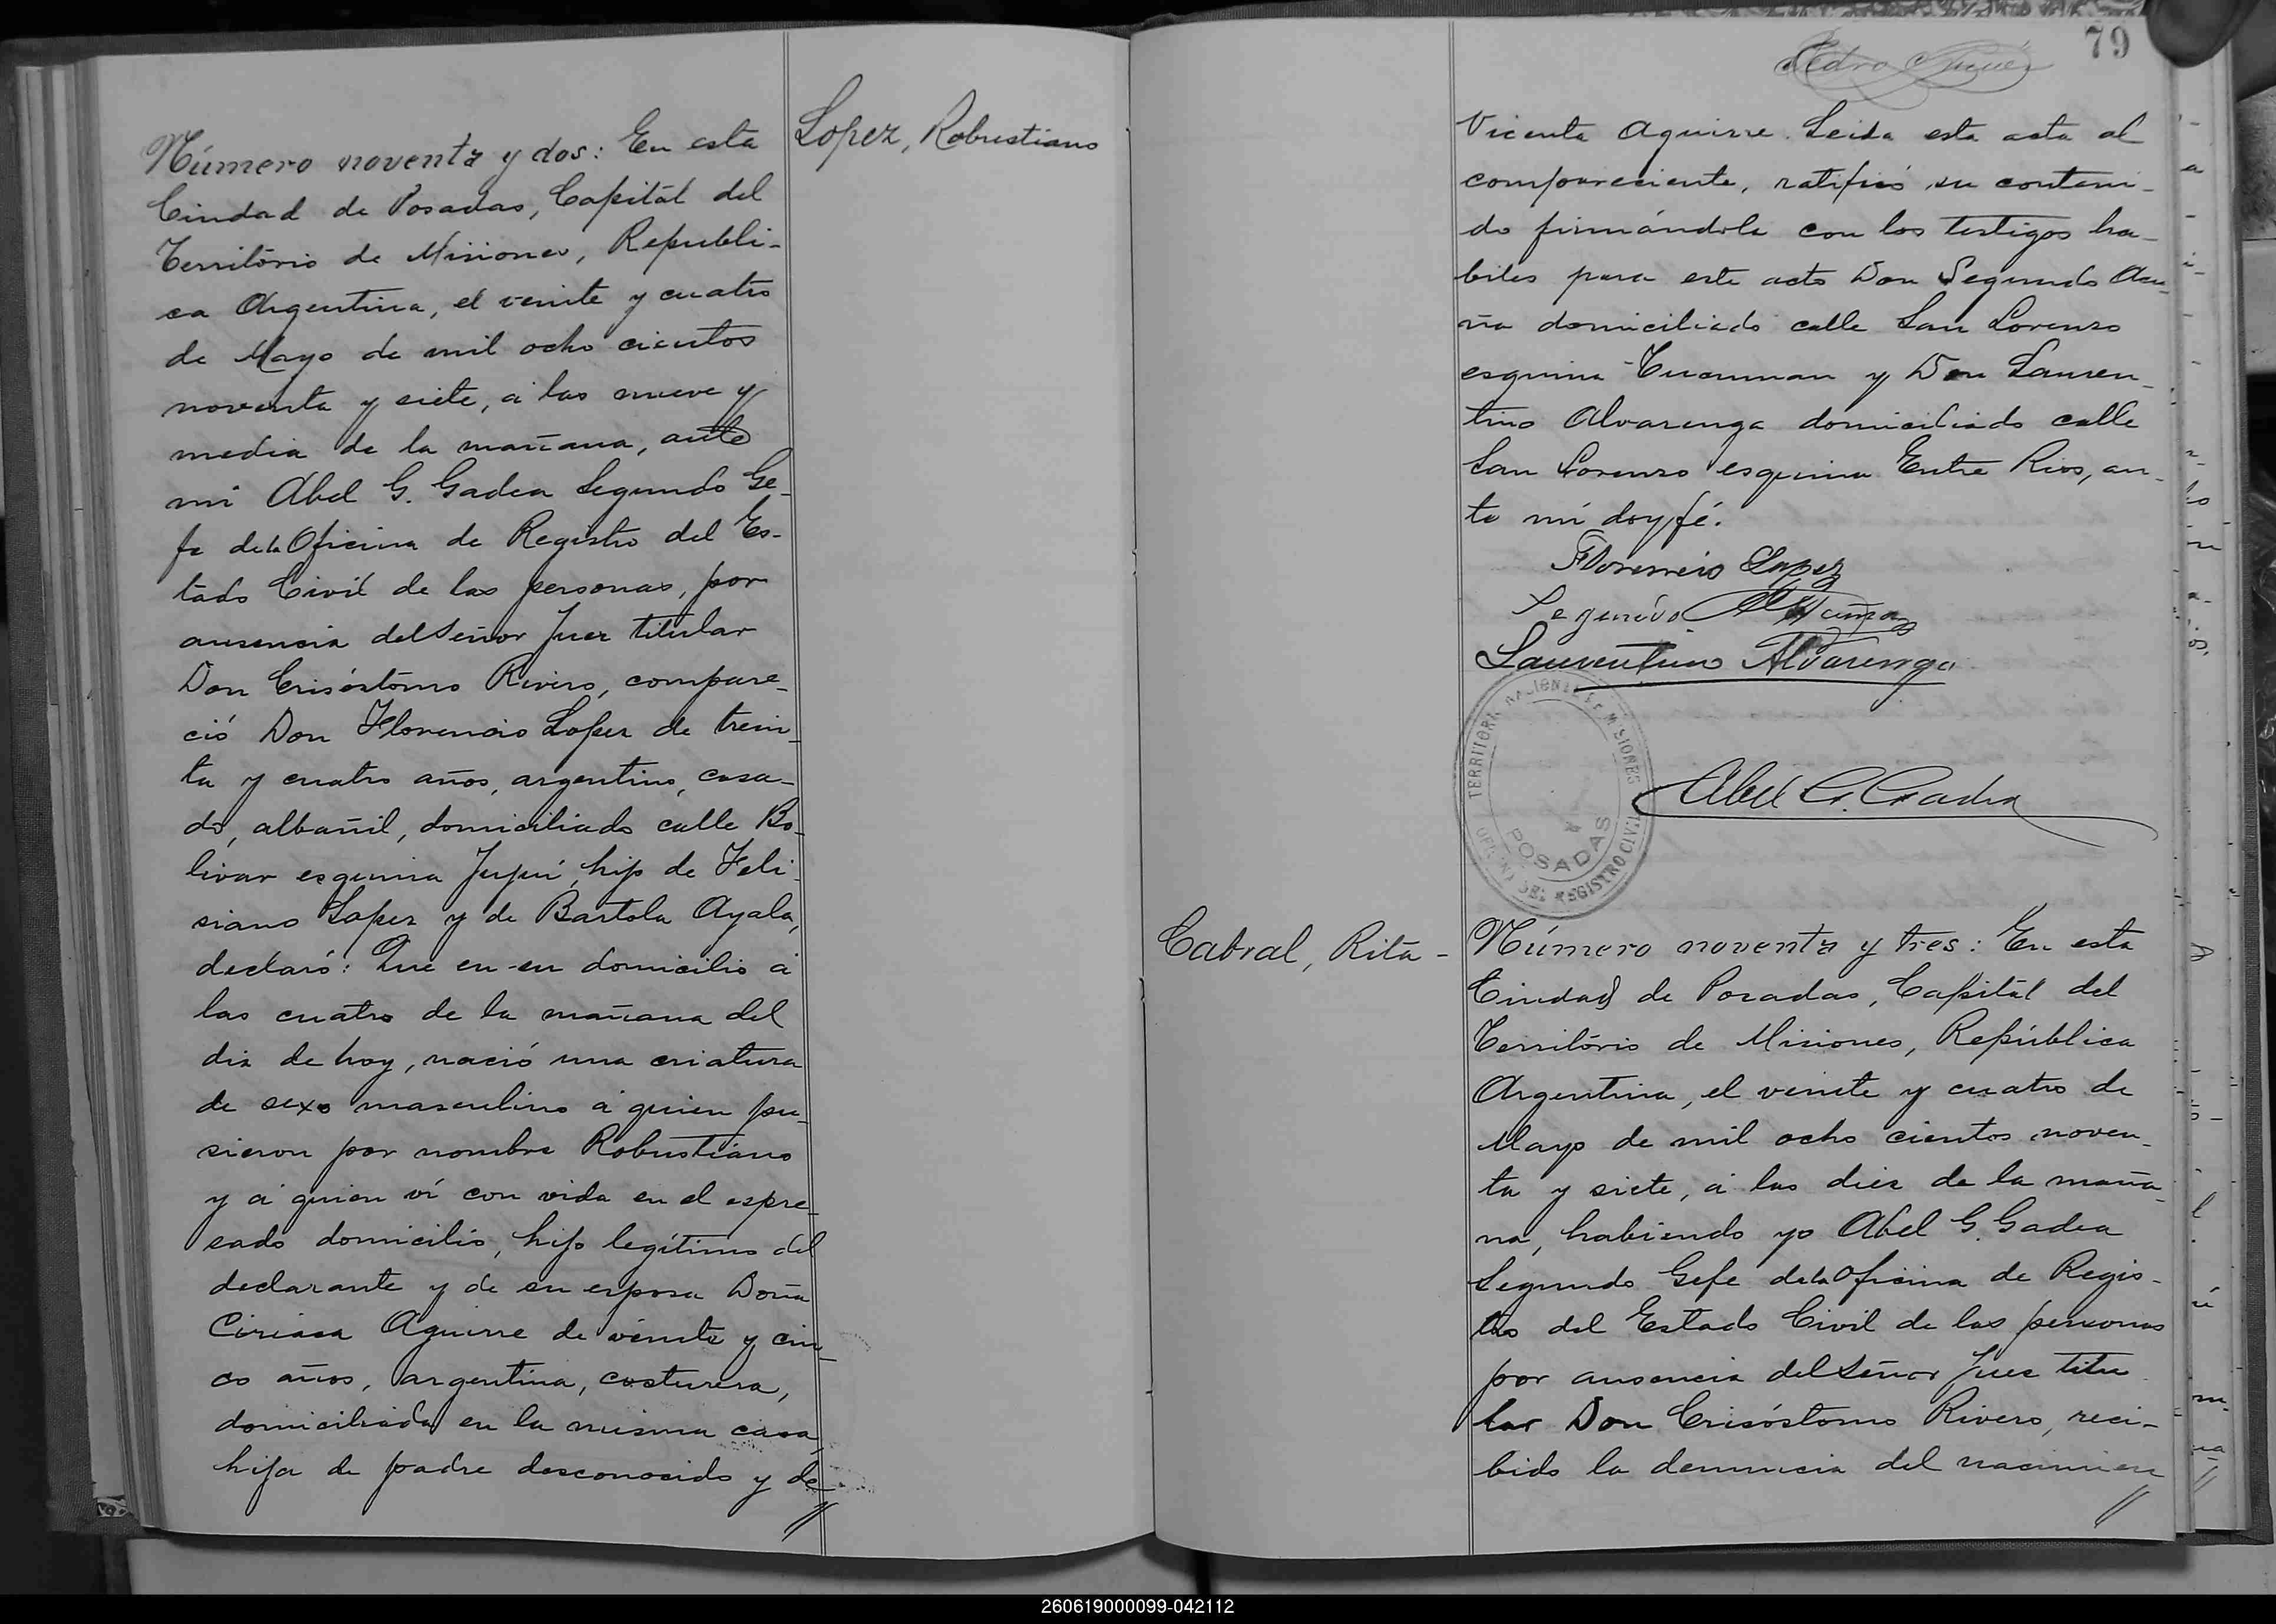 Lopez, Robustiano
Número noventa y dos: En esta
Ciudad de Posadas, Capitál del
Território de Misiones, Republi-
ca Argentina, el veinte y cuatro
de Mayo de mil ocho cientos
noventa y siete, á las nueve y
media de la mañana, ante
mi Abel G. Gadea Segundo Ge-
fe de la Oficina de Registro del Es-
tado Civil de las personas, por
ausencia del Señor Juez titular
Don Crisóstomo Rivero, compare-
ció Don Florencio Lopez de trein-
ta y cuatro años, argentino, casa-
do, albañil, domiciliado calle Bo-
livar esquina Jujuí, hijo de Feli-
siano Lopez y de Bartola Ayala,
declaró: Que en su domicilio á
las cuatro de la mañana del
dia de hoy, nació una criatura
de sexo masculino á quien pu-
sieron por nombre Robustiano
y á quien ví con vida en el espre-
sado domicilio, hijo legítimo del
declarante y de su esposa Doña
Ciriaca Aguirre de veinte y cin-
co años, argentina, costurera,
domiciliada en la misma casa,
hija de padre desconocido y de
79
Pedro
Vicenta Aguirre. Leida esta acta al
compareciente, ratificó su conteni-
do firmándola con los testigos ha-
biles para este acto Don Segundo Acu-
ña domiciliado calle San Lorenzo
esquina Tucuman y Don Lauren-
tino Alvarenga domiciliado calle
San Lorenzo esquina Entre Rios, an-
te mí doy fé.
Florencio Lopez
Segundo Acuña
Laurentino Alvarenga
TERRITORIO NACIONAL DE MISIONES
POSADAS
OFICINA DEL REGISTRO CIVIL
Abel G. Gadea
Cabral, Rita -
Número noventa y tres: En esta
Ciudad de Posadas, Capitál del
Território de Misiones, República
Argentina, el veinte y cuatro de
Mayo de mil ocho cientos noven-
ta y siete, á las diez de la maña-
na, habiendo yo Abel G. Gadea
Segundo Gefe de la Oficina de Regis-
tro del Estado Civil de las personas
por ausencia del Señor Juez titu
lar Don Crisóstomo Rivero, reci-
bido la denuncia del nacimien
260619000099-042112